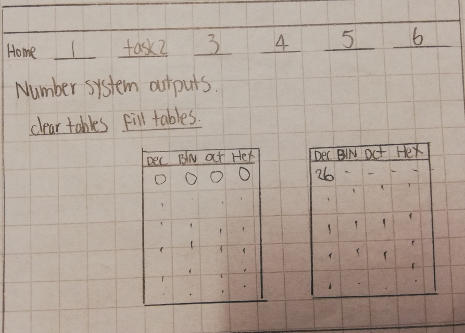 Home 1 task2 3 4 5 6
Number system outputs.
clear tables fill tables.
Dec BIN Oct Hex Dec BIN Oct Hex
0 0 0 0 26 - - -